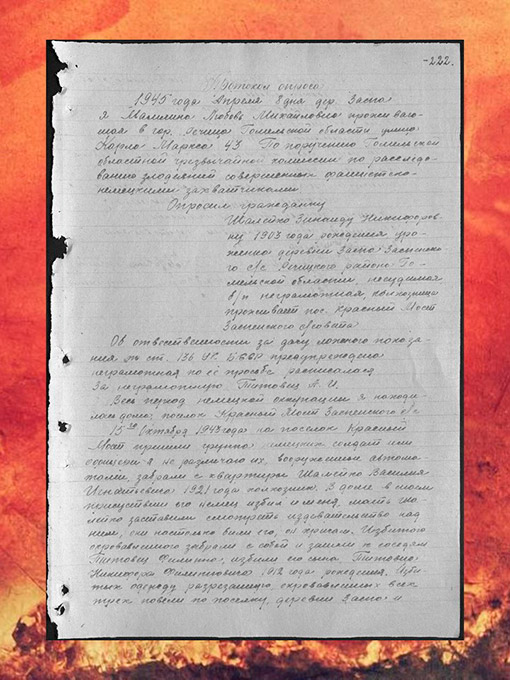 -222.
Протокол опроса
1945 года Апреля 8 дня дер. Заспа
я Малинина Любовь Михайловна проживаю-
щая в гор. Речица Гомельской области улица
Карла Маркса 43 По поручению Гомельской
областной чрезвычайной комиссии по расследо-
ванию злодеяний совершенных фашистско-
немецкими захватчиками.
Опросил гражданку
Шалетко Зинаиду Никифоров-
ну 1903 года рождения уро-
женка деревни Заспа Заспенско-
го с/с Речицкого района Го-
мельской области, несудимая
б/п неграмотная колхозница
проживает пос. Красный Мост
Заспенского с/совета
Об ответственности за дачу ложного показа-
ния по ст. 136 УК БССР предупреждена
неграмотная по её просьбе расписался
За неграмотную Титовец А. И.
Весь период немецкой оккупации я находи-
лась дома, поселок Красный Мост Заспенского с/с
15го Октября 1943 года на поселок Красный
Мост пришли группа немецких солдат или
офицеры я не различаю их, вооружение автома-
тами, забрали с квартиры Шалетко Василия
Игнатьевича 1921 года колхозник. В доме в моем
присутствии его немец избил и меня, мать
заставили смотреть издевательство над
ним, они настолько били его, он хрипел. Избитого
окровавленного забрали с собой и зашли к соседям
Титовец Филиппа, избили его сына Титовца
Никифора Филипповича 1912 года рождения. Изби-
тых одежду разрезанную, окровавленных всех
трех повели по поселку, деревни Заспа и